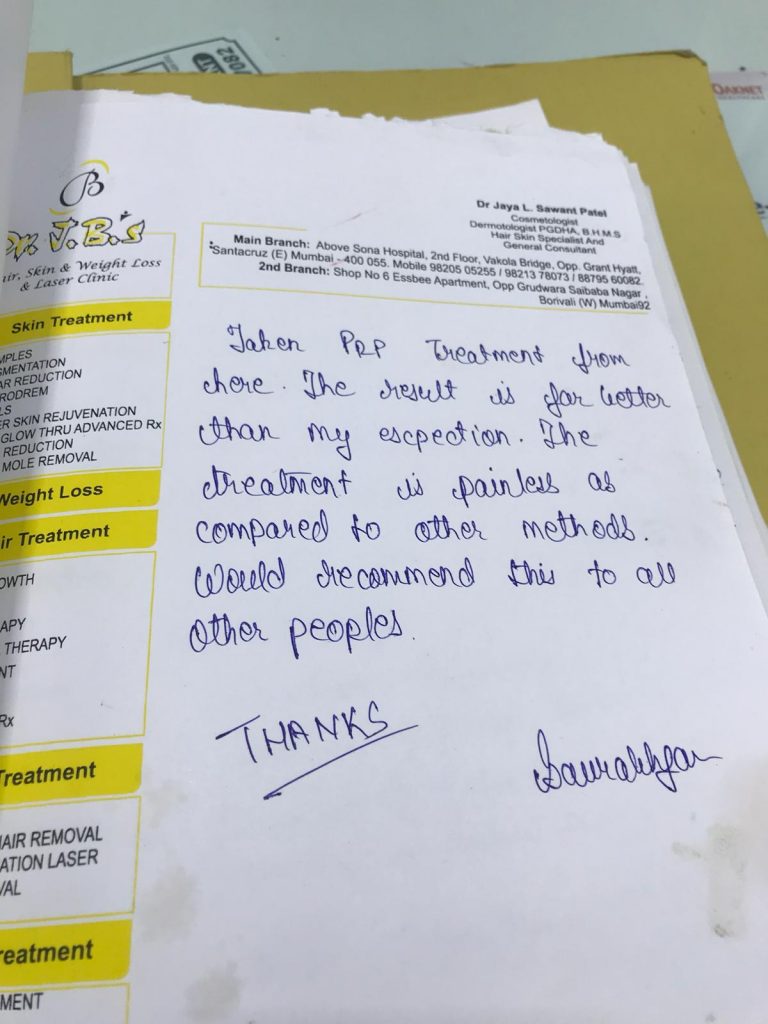 7082
OAKNET
B
Dr. J.B.'s
air, Skin & Weight Loss
& Laser Clinic
Dr Jaya L. Sawant Patel
Cosmetologist
Dermotologist PGDHA, B.H.M.S
Hair Skin Specialist And
General Consultant
Main Branch: Above Sona Hospital, 2nd Floor, Vakola Bridge, Opp. Grant Hyatt,
Santacruz (E) Mumbai - 400 055. Mobile 98205 05255 / 98213 78073 / 88795 60082.
2nd Branch: Shop No 6 Essbee Apartment, Opp Grudwara Saibaba Nagar,
Borivali (W) Mumbai92
Skin Treatment
MPLES
GMENTATION
AR REDUCTION
RODREM
LS
ER SKIN REJUVENATION
GLOW THRU ADVANCED Rx
REDUCTION
MOLE REMOVAL
Weight Loss
ir Treatment
OWTH
APY
THERAPY
NT
Rx
Treatment
AIR REMOVAL
ATION LASER
VAL
reatment
MENT
Taken PRP Treatment from
here. The result is far better
than my escpection. The
treatment is painless as
compared to other methods.
Would recommend this to all
other peoples.
THANKS